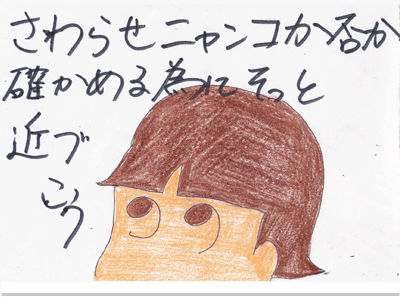 さわらせニャンコか否か
確かめる為にそっと
近づ
こう